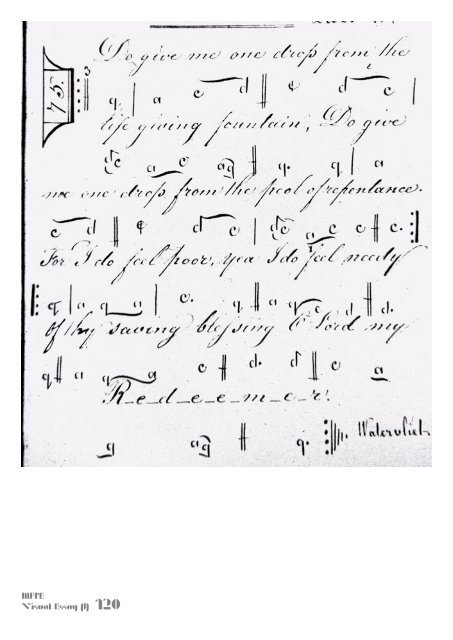 75.
Do give me one drop from the
3
q. | a e d ‖ e d e |
life giving fountain, Do give
de a e ag ‖ q. q | a
me one drop from the pool of repentance.
e d ‖ e d e | de a e e ‖ e.
For I do feel poor, yea I do feel needy
q | a q a | e. q ‖ a q e d ‖ d.
Of thy saving blessing O Lord my
q ‖ a q a e ‖ d. d ‖ e a
R_e_d_e_e_m_e_r.
g ag ‖ q. Watervliet
Visual Essay (I) 120